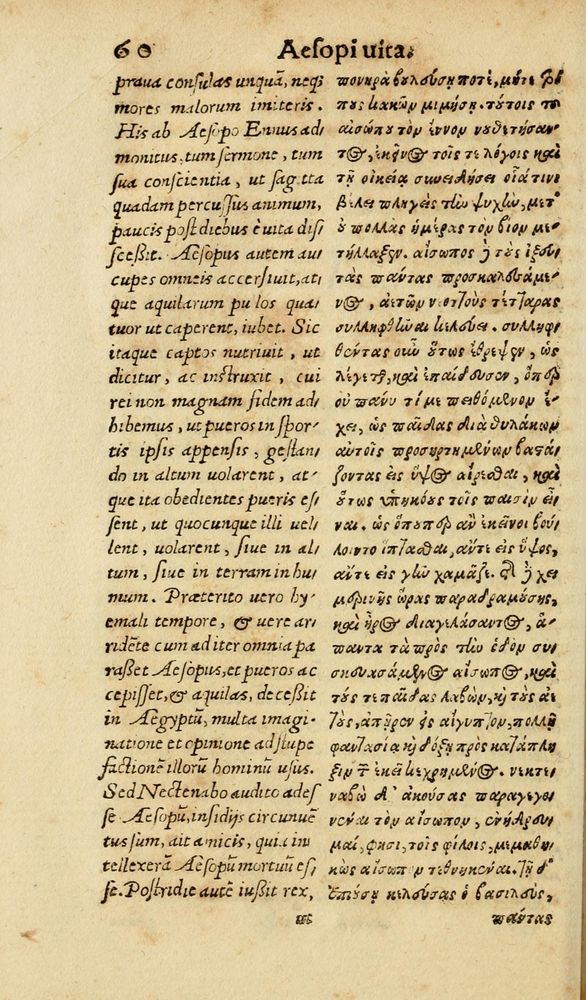 60 Aesopi uita.
praua consulas unquã, neq;
mores malorum imiteris.
His ab Aesopo Ennus ad
monitus, tum sermone, tum
sua conscientia, ut sagitta
quadam percussus animum,
paucis post diebus è uita dis
scessit. Aesopus autem au
cupes omneis accersiuit, at
que aquilarum pullos qua
tuor ut caperent, iubet. Sic
itaque captos nutriuit, ut
dicitur, ac instruxit, cui
rei non magnam fidem ad
hibemus, ut pueros in spor
tis ipsis appensis, gestan
do in altum uolarent, at
que ita obedientes pueris es
sent, ut quocunque illi uel
lent, uolarent, siue in al
tum, siue in terram in hu
mum. Præterito uero hy
emali tempore, & uere ar
ridẽte cum ad iter omnia pa
rasset Aesopus, et pueros ac
cepisset, & aquilas, decessit
in Aegyptũ, multa imagi
natione et opinione ad stupe
factionẽ illorũ hominũ usus.
Sed Nectenabo audito ades
se Aesopũ, insidijs circunuẽ
tus sum, ait amicis, quia in
tellexerã Aesopũ mortuũ es
se. Postridie autẽ iußit rex,
πονηρὰ βυλδύσῃ ποτὲ, μήτε
μιμήσῃ. τύτοις
αἰσώπυ τὸν ἔννον νυθετήσαν
τοῖς τε λόγοις καὶ
τῇ οἰκεία συνειδήσει οἷά τινι
βέλει πληγεὶς τὴν ψυχὴν, μετ'
ὐ πολλὰς ἡμέρας τὸν βίον με
τήλλαξεν. αἴσωπος δὲ τὺς ἰξευ
τὰς πάντας προσκαλεσάμε
νος, ἀετῶν νεοττοὺς τέτταρας
συλληφθῆναι κελεύει. συλληφ
θέντας οὖν ὕτως ἔθρεψεν, ὡς
λέγεται, καὶ ἐπαίδευσεν, ὅπερ
οὐ πάνυ τι με πειθόμενον ἔ
χει, ὡς παῖδας διὰ θυλάκων
αὐτοῖς προσηρτημένων βαστά
ζοντας εἰς ὕψος αἴρεσθαι, καὶ
ὕτως ὑπηκόυς τοῖς παισὶν εἶ
ναι. ὡς ὅπυπερ ἂν ἐκεῖνοι βού
λοιντο ἵπτασθαι, ἄντε εἰς ὕψος,
ἄντε εἰς γῆν χαμᾶζε. τῆς δὲ χει
μερινῆς ὥρας παραδραμύσης,
καὶ ἦρος διαγελάσαντος, ἅ-
παντα τὰ πρὸς τὴν ὁδὸν συ
σκευασάμενος αἴσωπος, καὶ
τύς τε παῖδας λαβὼν, καὶ τὺς ἀε
τὺς, ἀπῆρεν εἰς αἴγυπτον, πολλῇ
φαντασίᾳ καὶ δόξῃ πρὸς κατάπλη
ξιν τῶν ἐκεῖ κεχρημένος. νεκτε
ναβὼ δ' ἀκούσας παραγεγο
νέναι τὸν αἴσωπον, ἐνήδρευ
μαι, φησὶ, τοῖς φίλοις, μεμαθη
κὼς αἴσωπον τεθνηκέναι. τῇ δ'
ἐπιύσῃ κελεύσας ὁ βασιλεὺς,
πάντας